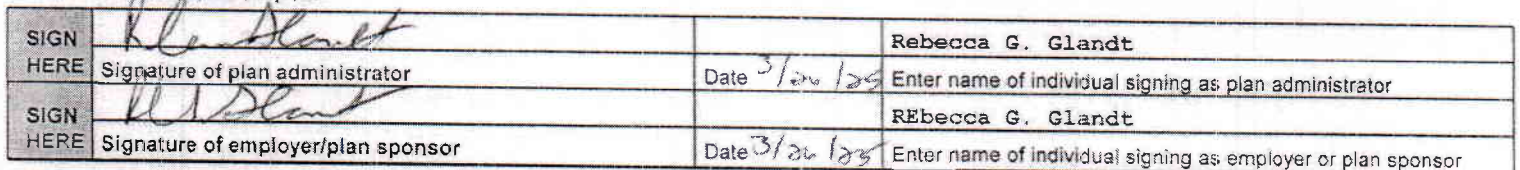 SIGN HERE
Rebecca G. Glandt
Signature of plan administrator Date 3/26/25 Enter name of individual signing as plan administrator
SIGN HERE
REbecca G. Glandt
Signature of employer/plan sponsor Date 3/26/25 Enter name of individual signing as employer or plan sponsor